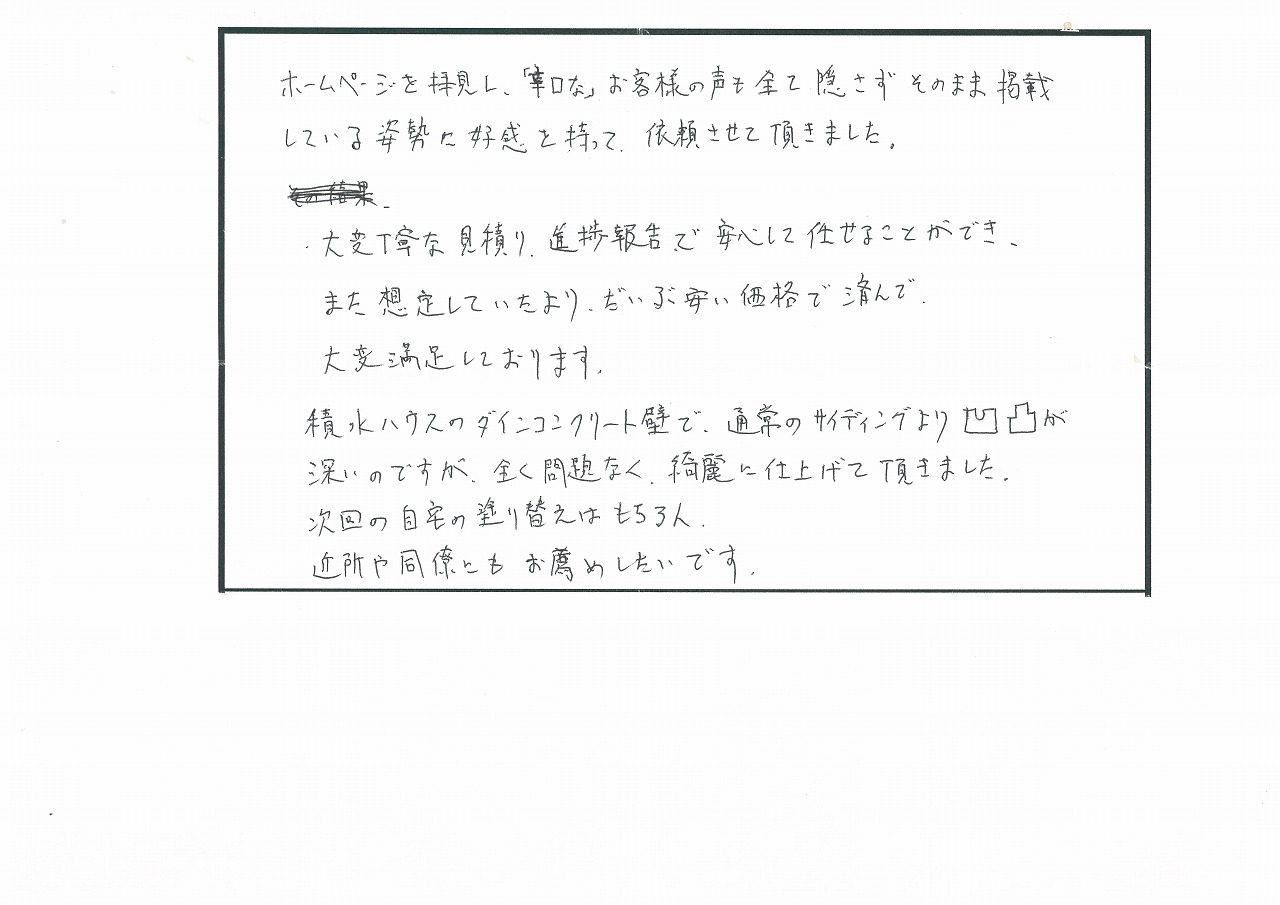 ホームページを拝見し、「辛口な」お客様の声も全て隠さずそのまま掲載
している姿勢に好感を持って、依頼させて頂きました。
その結果、
・大変丁寧な見積り、進捗報告で安心して任せることができ、
また想定していたより、だいぶ安い価格で済んで、
大変満足しております。
積水ハウスのダインコンクリート壁で、通常のサイディングより凹凸が
深いのですが、全く問題なく、綺麗に仕上げて頂きました。
次回の自宅の塗り替えはもちろん、
近所や同僚にもお薦めしたいです。